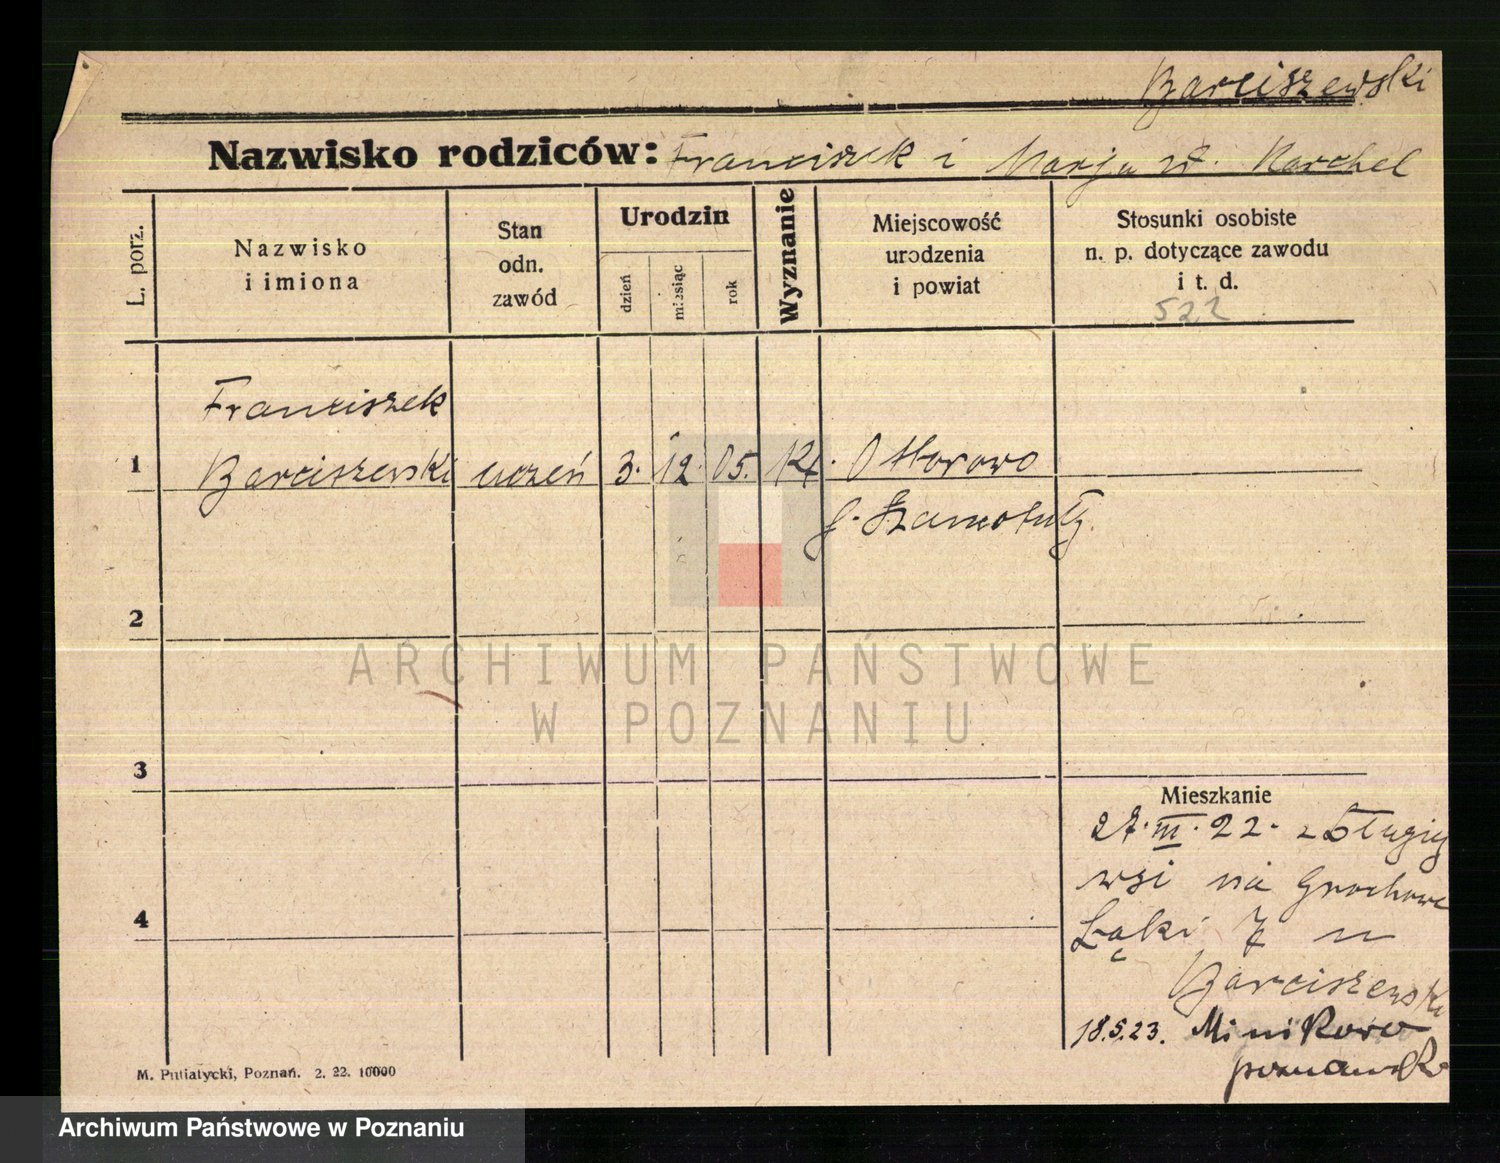 Barciszewski
Nazwisko rodziców: Franciszek i Marja
L. porz.
Nazwisko
i imiona
Stan
odn.
zawód
Urodzin
dzień
miesiąc
rok
Wyznanie
Miejscowość
urodzenia
i powiat
Stosunki osobiste
n. p. dotyczące zawodu
i t. d.
522
Franciszek
1 Barciszewski uczeń 3. 12. 05. kt. Ottorowo
Szamotuły
2
3
4
Mieszkanie
27. III. 22. z Długiej
wsi na Grochowe
Łąki 7 u
Barciszewski
18.5.23. Minikowo
M. Putiatycki, Poznań. 2. 22. 10000
ARCHIWUM PAŃSTWOWE
W POZNANIU
Archiwum Państwowe w Poznaniu